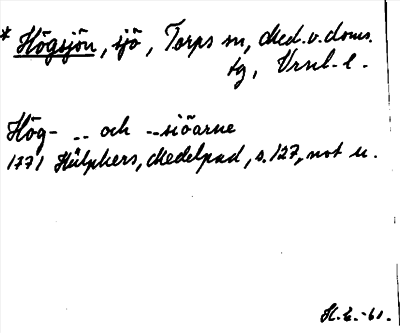 * Högsjön, sjö, Torps sn, Med. v. doms.
tg, Vrsl. l.
Hög- -- och --siöarne
1771 Hülphers, Medelpad, s. 127, not u.
H. E. -61.